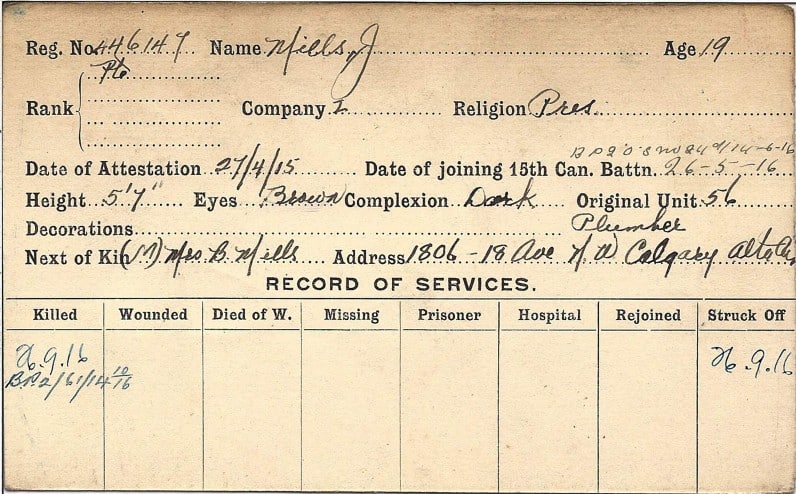 Reg. No. 446147 Name Mills, J Age 19
Rank Pte Company I Religion Pres.
14-6-16
Date of Attestation 27/4/15 Date of joining 15th Can. Battn. 26-5-16
Height 5'7" Eyes Brown Complexion Dark Original Unit 56
Decorations Plumber
Next of Kin (M) Mrs B. Mills Address 1806-18 Ave N.W Calgary Alta
RECORD OF SERVICES.
Killed Wounded Died of W. Missing Prisoner Hospital Rejoined Struck Off
26.9.16 26.9.16